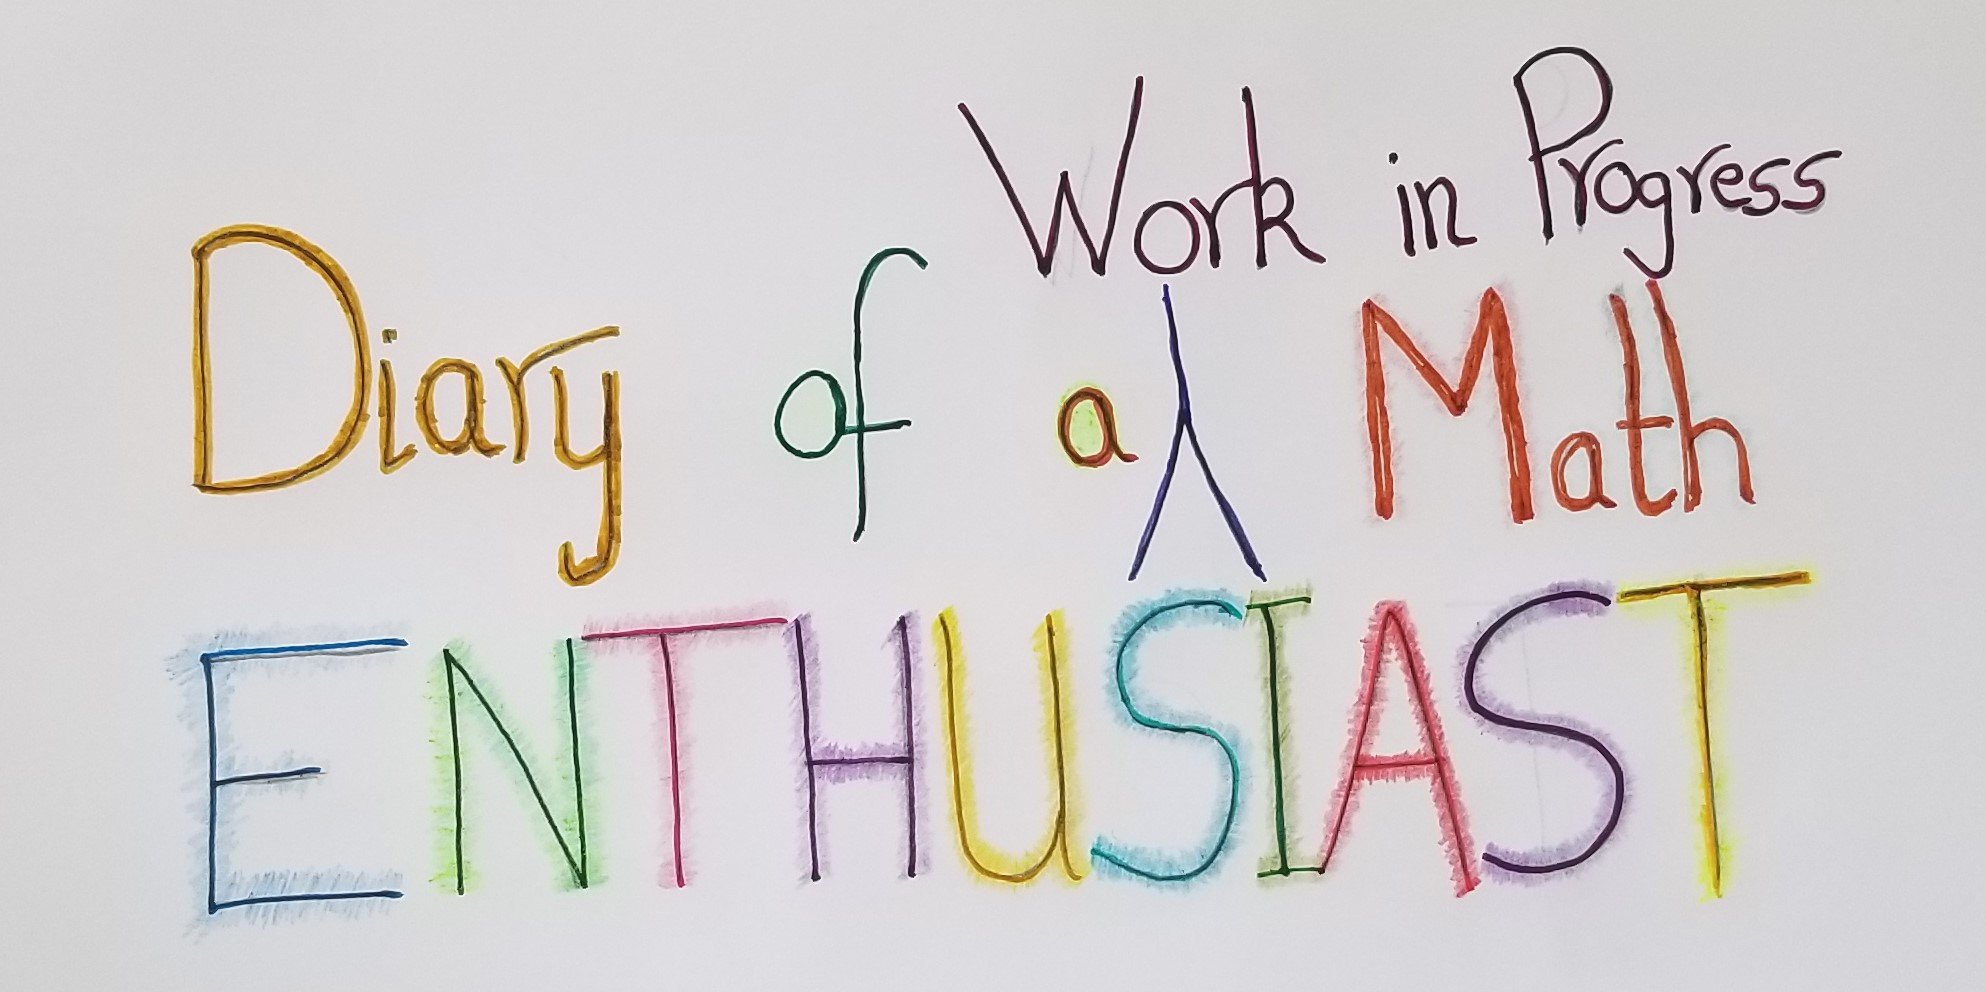 Work in Progress
Diary of a Math
ENTHUSIAST